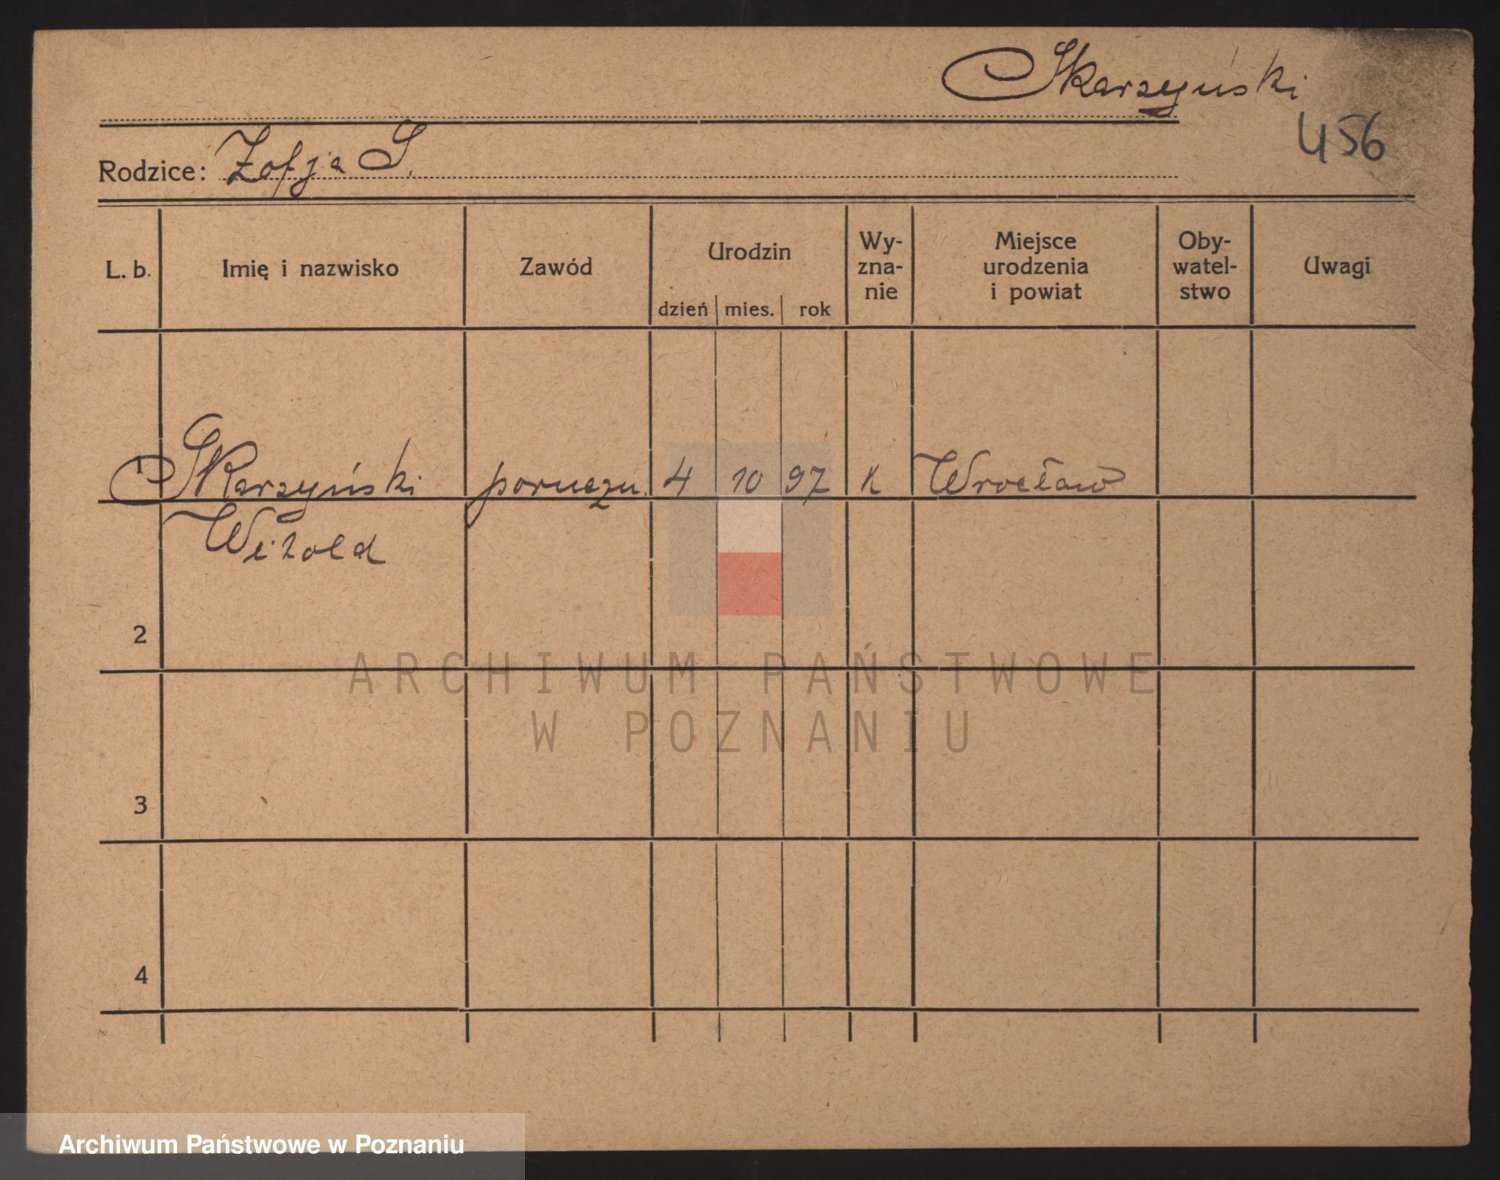 Skarzyński
456
Rodzice: Zofja S.
L. b. Imię i nazwisko Zawód Urodzin dzień mies. rok Wy- zna- nie Miejsce urodzenia i powiat Oby- watel- stwo Uwagi
1 Skarzyński poruczn. 4 10 97 K Wrocław
Witold
2
ARCHIWUM PAŃSTWOWE
W POZNANIU
3
4
Archiwum Państwowe w Poznaniu